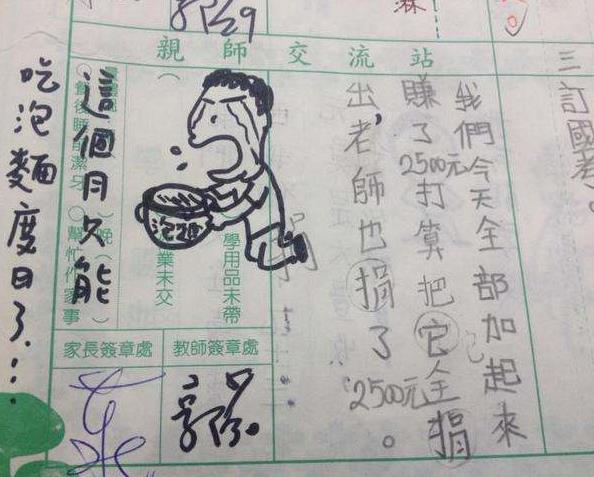 親師交流站
三訂國考。
我們今天全部加起來
賺了2500元打算把它全捐
出,老師也捐了2500元。
學用品未帶
業未交
泡麵
這個月只能
吃泡麵度日了...
餐後睡前潔牙
幫忙作家事
家長簽章處
教師簽章處